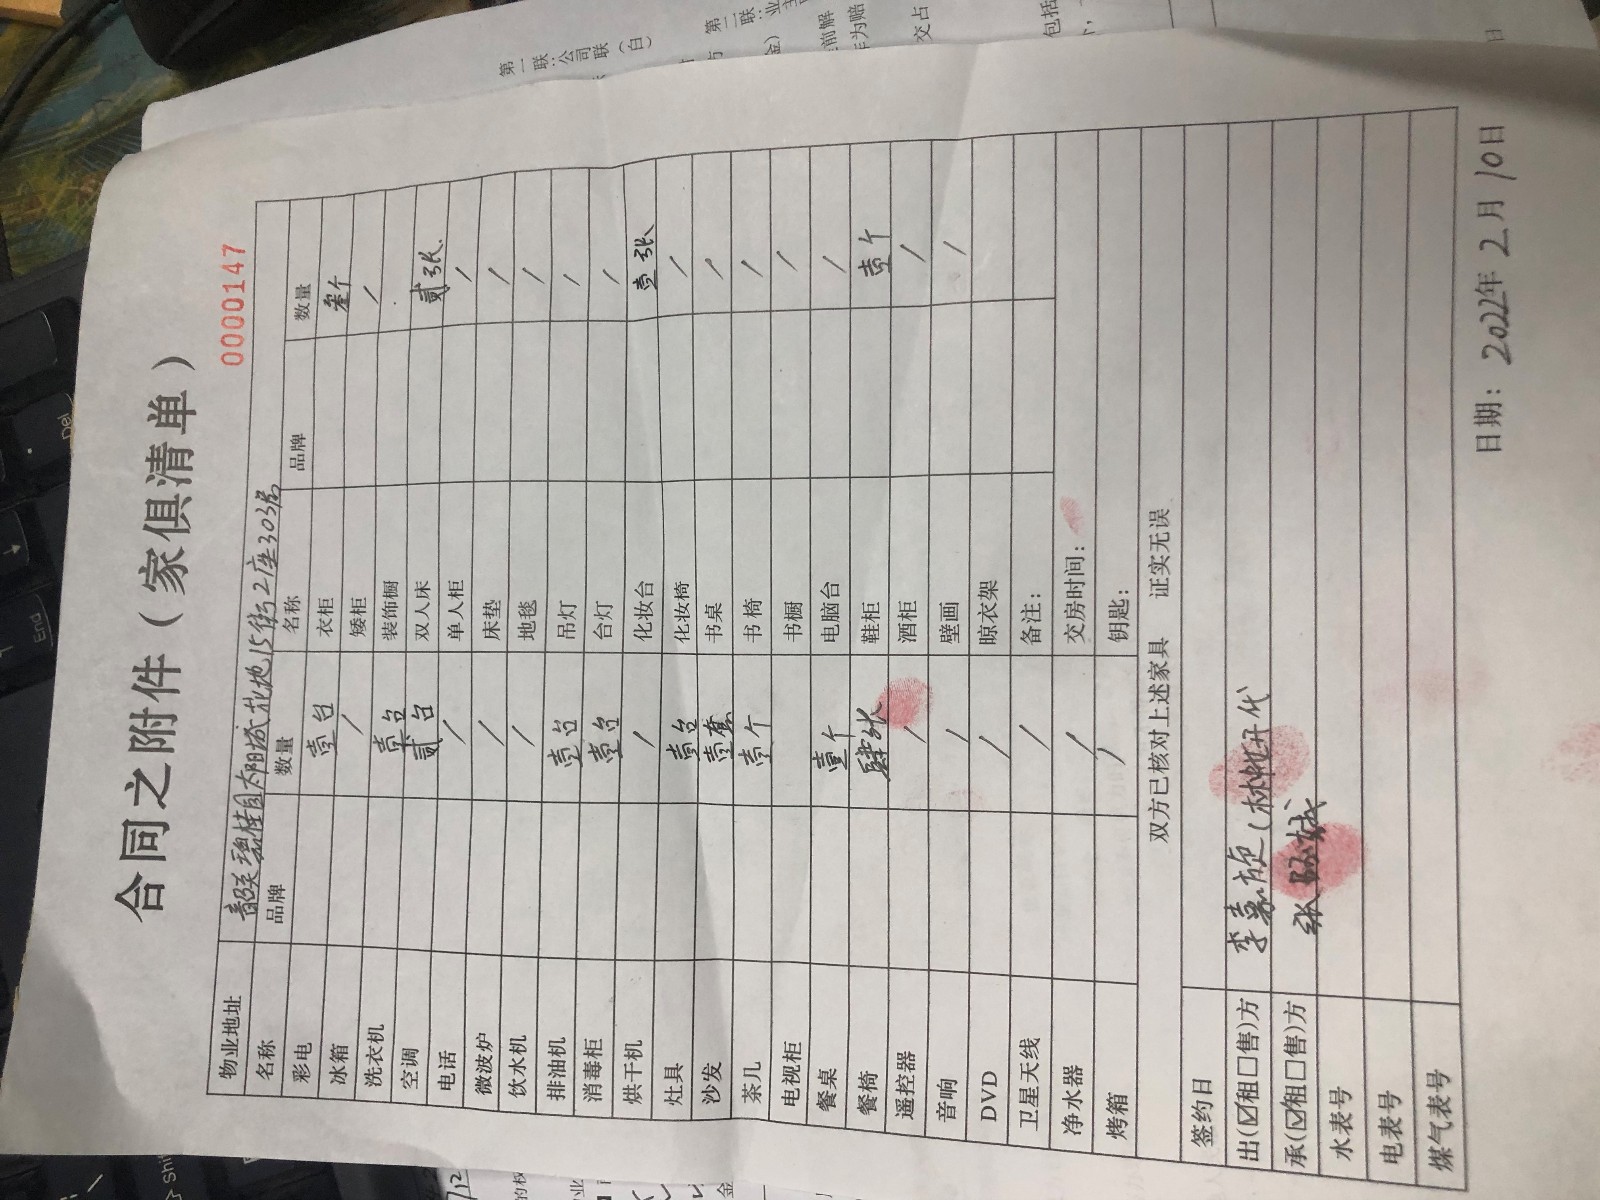 合同之附件（家俱清单）
0000147
物业地址 韶关碧桂园太阳城花地15街2座303房
名称 品牌 数量 名称 品牌 数量
彩电 壹台 衣柜 叁个
冰箱 / 矮柜 /
洗衣机 壹台 装饰橱
空调 贰台 双人床 贰张
电话 / 单人柜 /
微波炉 / 床垫 /
饮水机 / 地毯 /
排油机 壹台 吊灯 /
消毒柜 壹台 台灯 /
烘干机 / 化妆台 壹张
灶具 壹台 化妆椅 /
沙发 壹套 书桌 /
茶几 壹个 书椅 /
电视柜 书橱 /
餐桌 壹个 电脑台 /
餐椅 肆张 鞋柜 壹个
遥控器 / 酒柜 /
音响 / 壁画 /
DVD / 晾衣架
卫星天线 / 备注：
净水器 / 交房时间：
烤箱 / 钥匙：
双方已核对上述家具 证实无误
签约日
出(☑租□售)方 李嘉旋（林 代
承(☑租□售)方 张
水表号
电表号
煤气表号
日期：2022年2月10日
第一联:公司联（白）
第二联:业
前解
为赔
交占
包括
日
Del
End
Shift